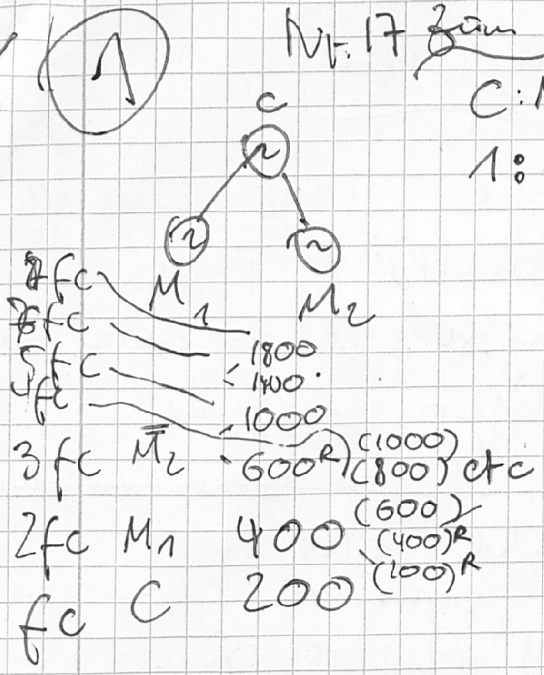 1
Nr. 17
C
C:
1:
M1
M2
fc
6fc
5fc
4fc
1800
1400
1000
3fc M2 600R (1000)
(800) etc
2fc M1 400 (600)
(400)R
fc C 200 (200)R